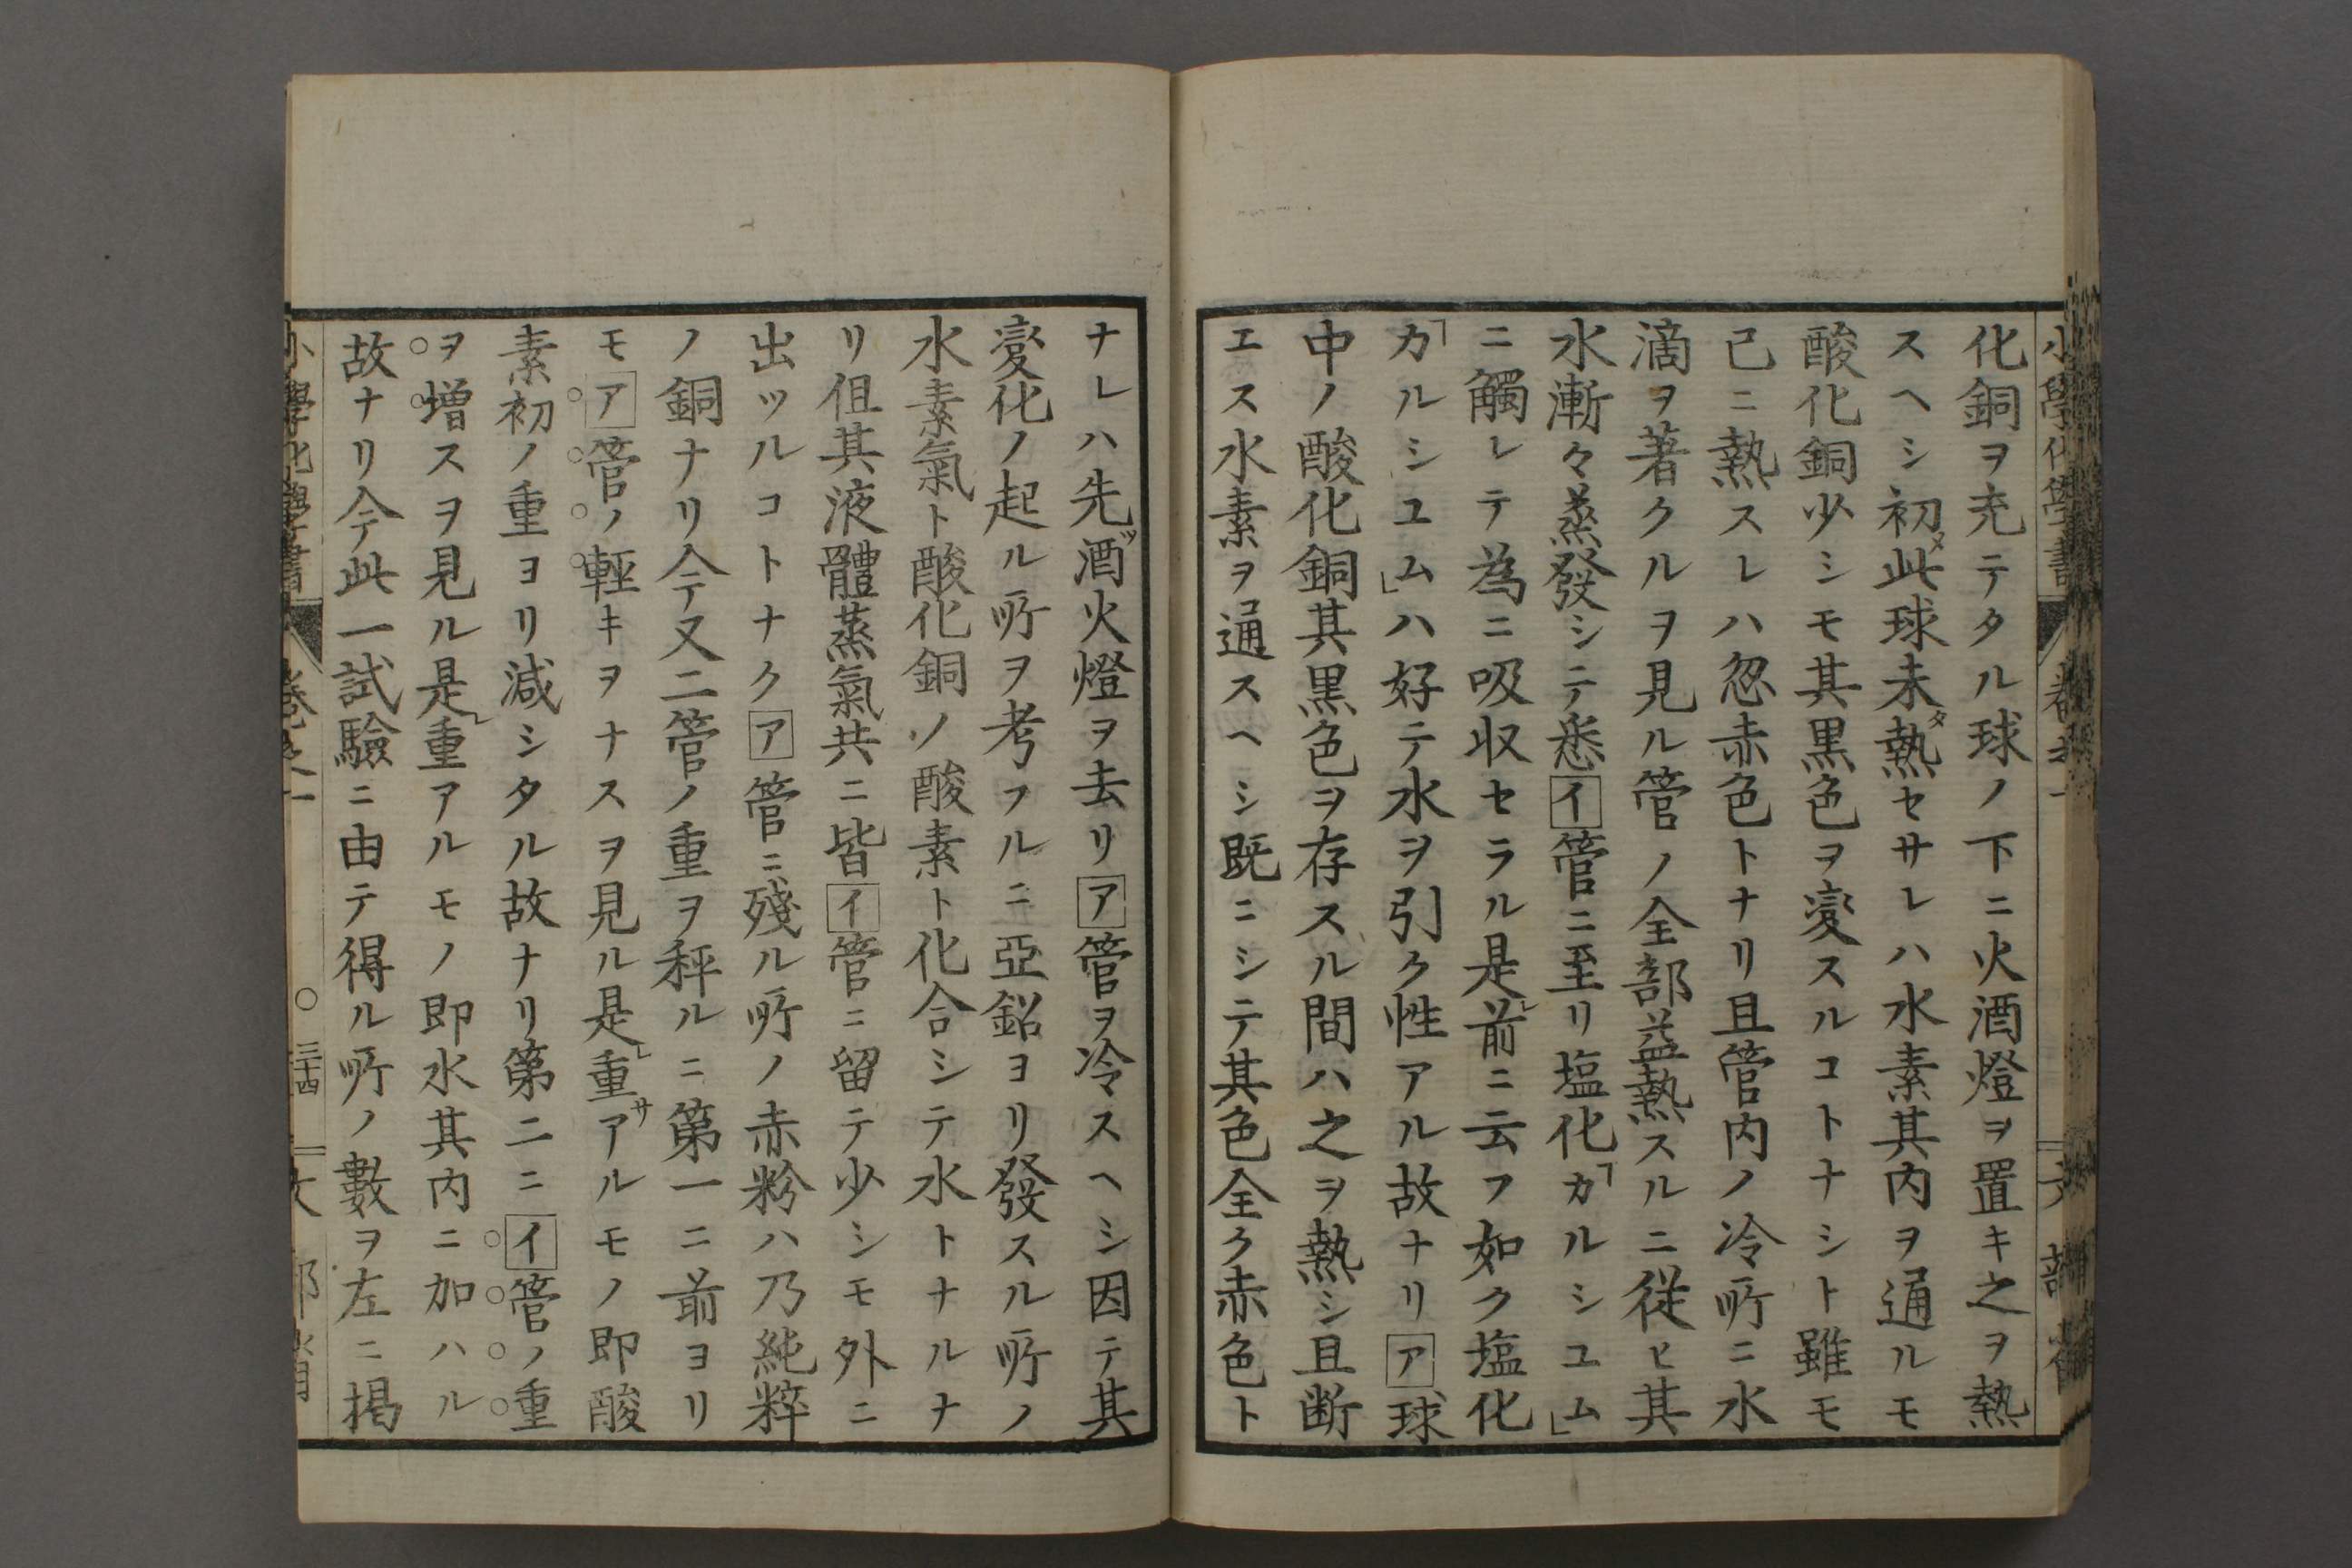 化銅ヲ充テタル球ノ下ニ火酒燈ヲ置キ之ヲ熱
スヘシ初メ此球未タ熱セサレハ水素其内ヲ通ルモ
酸化銅少シモ其黒色ヲ変スルコトナシト雖モ
已ニ熱スレハ忽赤色トナリ且管内ノ冷所ニ水
滴ヲ著クルヲ見ル管ノ全部益熱スルニ従ヒ其
水漸々蒸發シテ悉イ管ニ至リ塩化「カルシユム」
ニ觸レテ為ニ吸収セラル是レ前ニ云フ如ク塩化
「カルシユム」ハ好テ水ヲ引ク性アル故ナリア球
中ノ酸化銅其黒色ヲ存スル間ハ之ヲ熱シ且断
エス水素ヲ通スヘシ既ニシテ其色全ク赤色ト
ナレハ先ツ酒火燈ヲ去リア管ヲ冷スヘシ因テ其
変化ノ起ル所ヲ考フルニ亞鉛ヨリ發スル所ノ
水素氣ト酸化銅ノ酸素ト化合シテ水トナルナ
リ但其液體蒸氣共ニ皆イ管ニ留テ少シモ外ニ
出ツルコトナクア管ニ殘ル所ノ赤粉ハ乃純粹
ノ銅ナリ今又二管ノ重ヲ秤ルニ第一ニ前ヨリ
モア管ノ輕キヲナスヲ見ル是レ重サアルモノ即酸
素初ノ重ヨリ減シタル故ナリ第二ニイ管ノ重
ヲ増スヲ見ル是レ重アルモノ即水其内ニ加ハル
故ナリ今此一試驗ニ由テ得ル所ノ數ヲ左ニ掲
小學化學書 巻之一 〇三十四 文部省